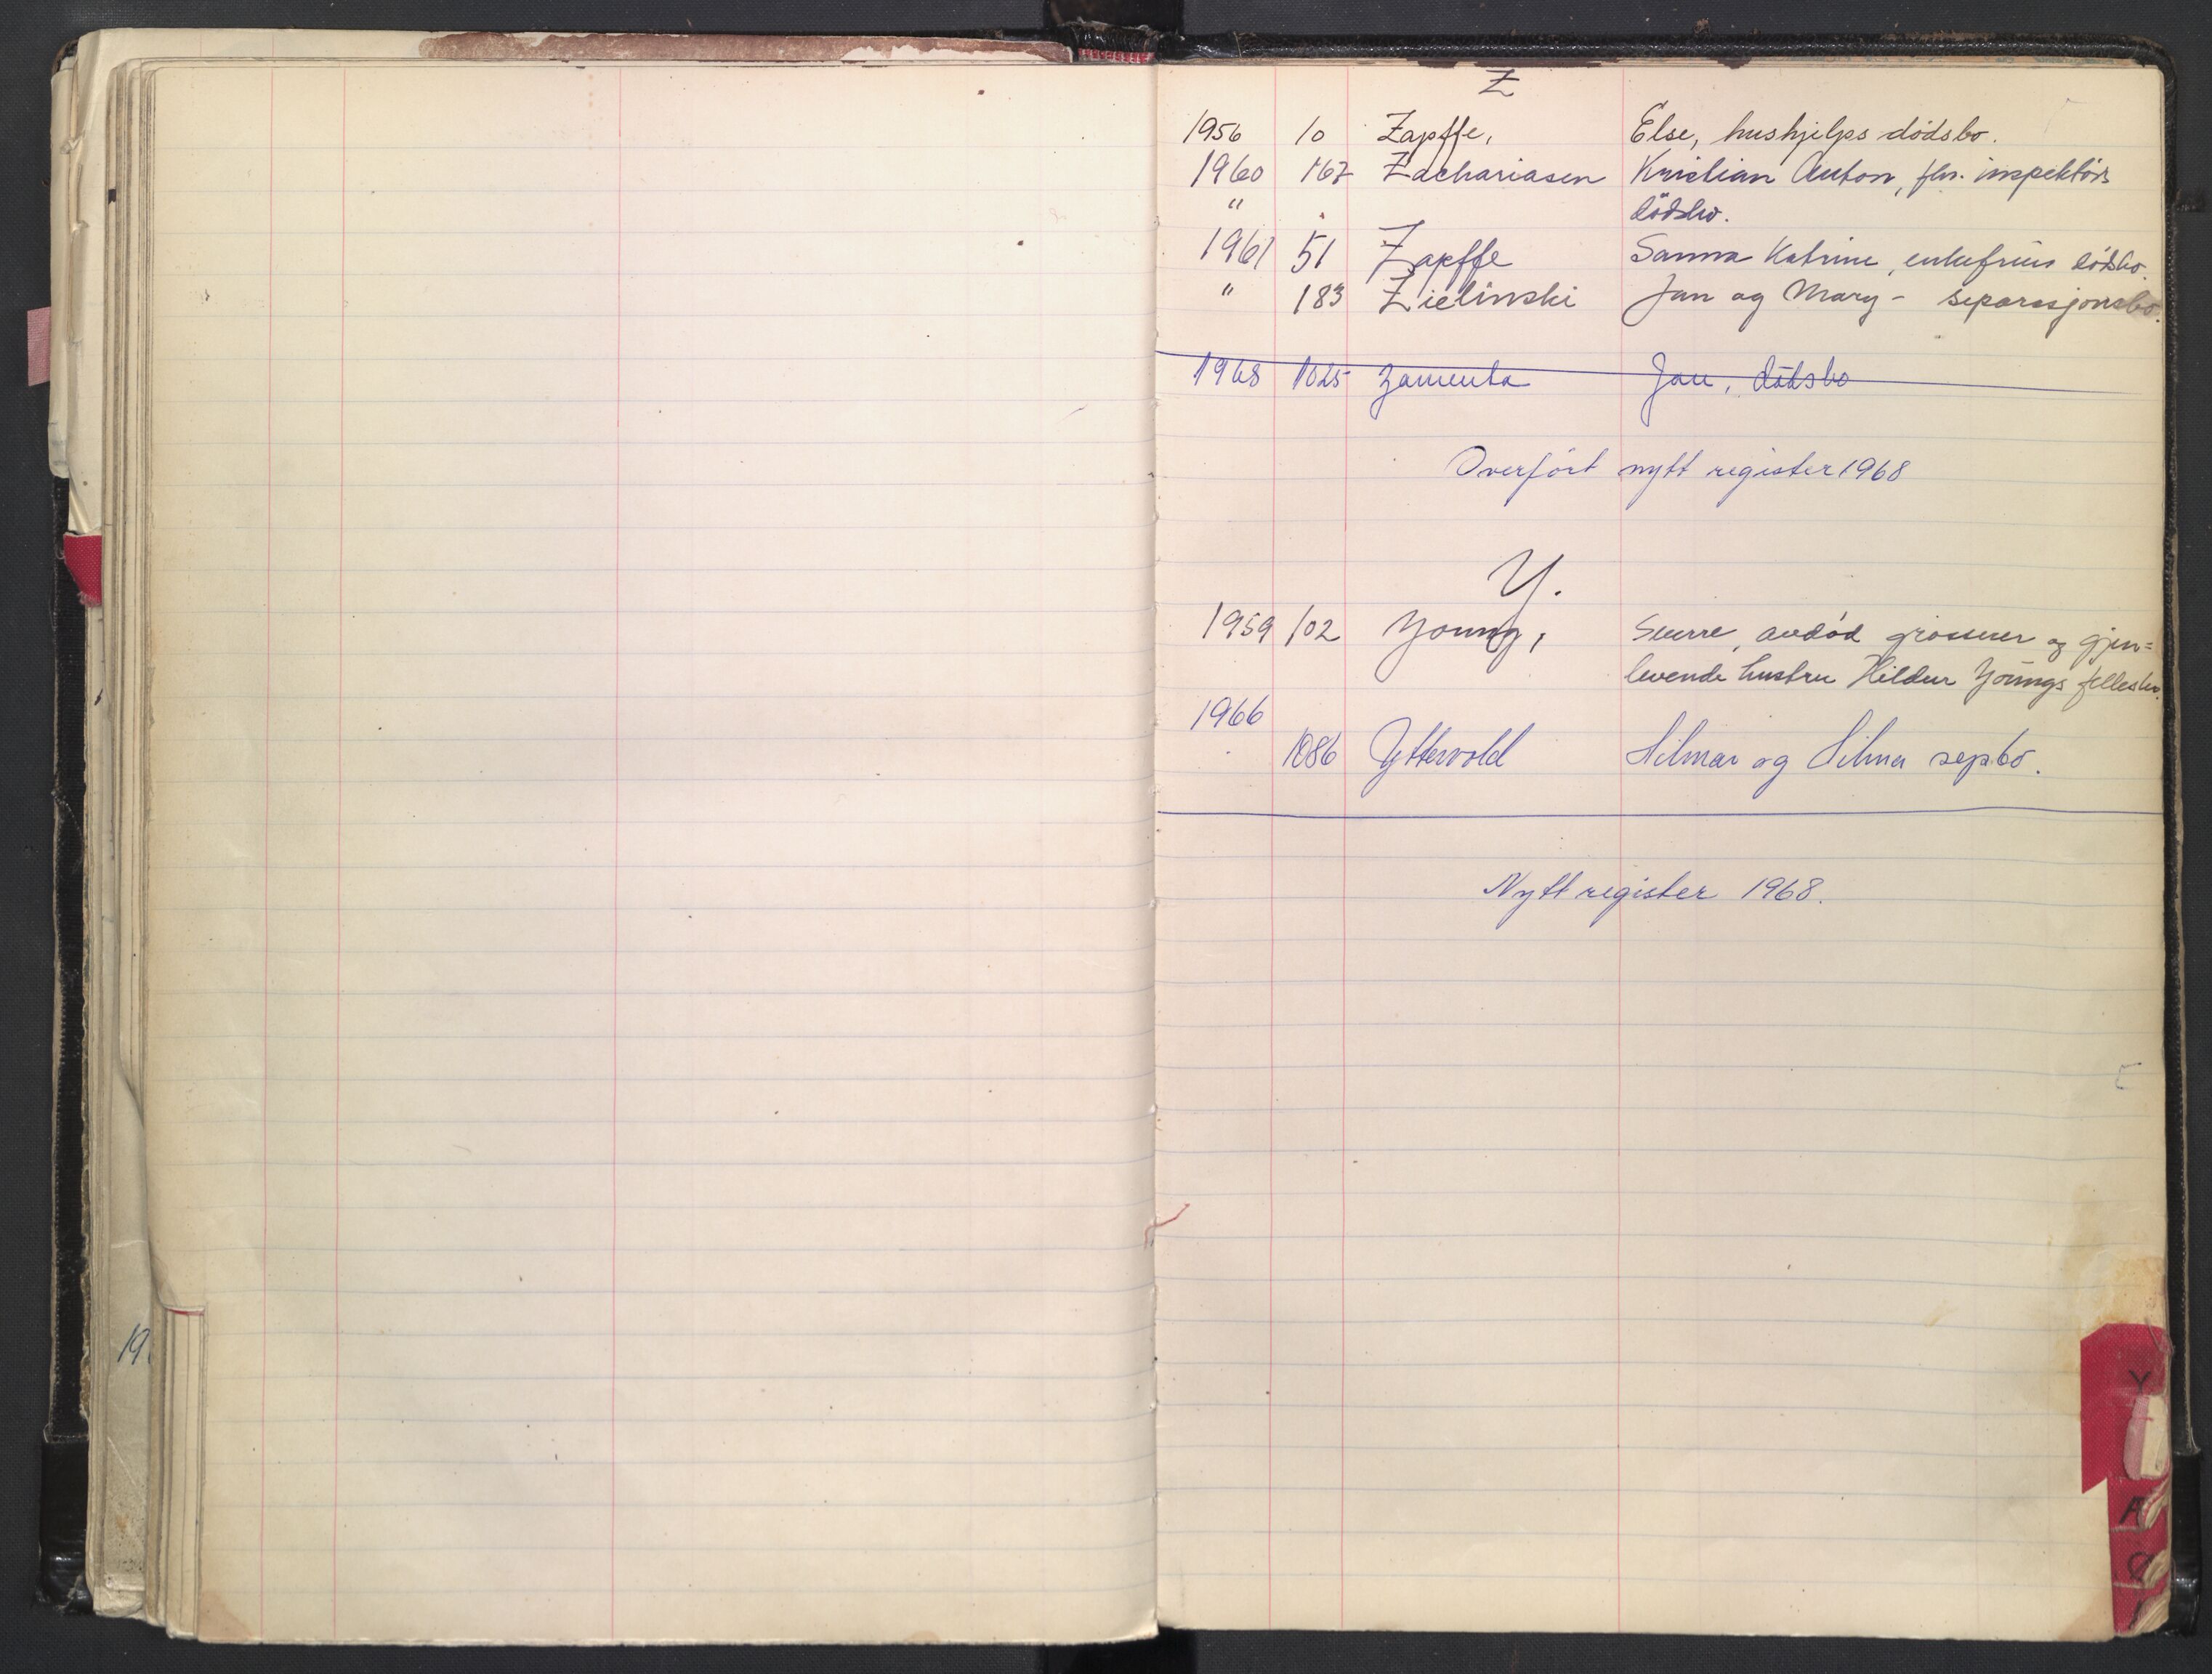 Z
1956 10 Zapffe, Else, hushjelps dödsbo.
1960 167 Zachariasen Kristian Anton, fhv. inspektörs
" dödsbo.
1961 51 Zapffe Sanna Katrine, enkefrues dödsbo.
" 183 Zielinski Jan og Mary - separasjonsbo.
1968 1025 Zamenta Jan, dödsbo
Overfört nytt register 1968
Y.
1959 102 Young, Sverre, avdöd grosserer og gjen=
levende hustru Hildur Youngs fellesbo.
1966
1086 Yttervold Hilmar og Hilma sepbo.
Nytt register 1968.
19
Y
Ø